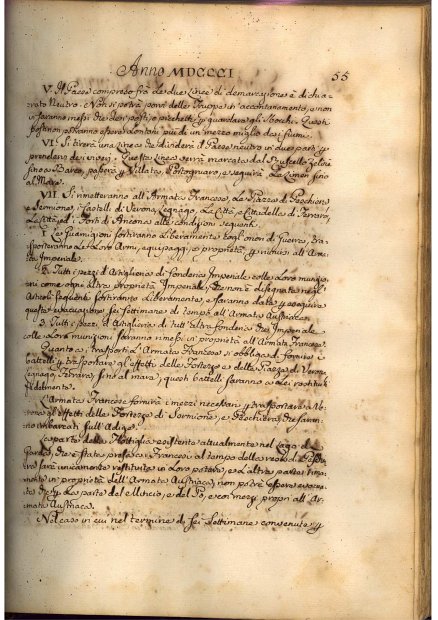 Anno MDCCCI
55
V. Il Paese compreso frà le due Linee di demarcazione è dichia-
rato Neutro. Non si potrà porvi delle Truppe in accantonamento, e non
vi saranno messi che dei posti, o picchetti per guardare gli Sbocchi. Questi
posti non potranno essere lontani più di un mezzo miglio dei fiumi.
VI. Si tirerà una Linea che dividerà il Paese neutro in due parti per
prendervi dei viveri. Questa Linea verrà marcata dal
sino a passerà per Villata, Portogruaro, e seguirà La Limen sino
al Mare.
VII. Si rimetteranno all'Armata Francese, Le Piazze di Peschiera,
e Sermione, i Castelli di Verona, Legnago, La Città, e Cittadella di Ferrara,
La Città, ed i Forti di Ancona alle condizioni seguenti.
1. Le Guarnigioni sortiranno Liberamente cogl'onori di Guerra, tra-
sporteranno Le Loro Armi, equipaggi, e proprietà per riunirsi all'Ar-
mata Imperiale.
2. Tutti i pezzi d'Artiglieria di fonderia Imperiale colle Loro munizio-
ni come ogni altra proprietà Imperiale, che non è disegnata negl'
Articoli seguenti sortiranno Liberamente, e saranno date per eseguire
questa evacuazione sei settimane di tempo all'Armata Austriaca.
3. Tutti i pezzi d'Artiglieria di tutt'altra fonderia che Imperiale
colle Loro munizioni saranno rimessi in proprietà all'Armata Francese.
Quanto a' trasporti L'Armata Francese si obbliga di fornire i
battelli per trasportare gl'effetti delle Fortezze, e delle Piazze di Verona,
Legnago, Ferrara sino al mare; questi battelli saranno a Lei restituiti
fidelmente.
L'Armata Francese fornirà i mezzi necessari per trasportare a Ve-
rona gl'effetti delle Fortezze di Sermione, e Peschiera, che saran-
no imbarcati sull'Adige.
La parte della Flottiglia esistente attualmente nel Lago di
Garda, che è stata presa a' Francesi al tempo della resa di Peschie-
ra sarà unicamente restituita in Loro potere, e L'altra parte rima-
nendo in proprietà dell'Armata Austriaca, non potrà essere evacua-
ta che per La parte del Mincio, e del Pò, e coi mezzi propri all'Ar-
mata Austriaca.
Nel caso in cui nel termine di sei Settimane convenute per